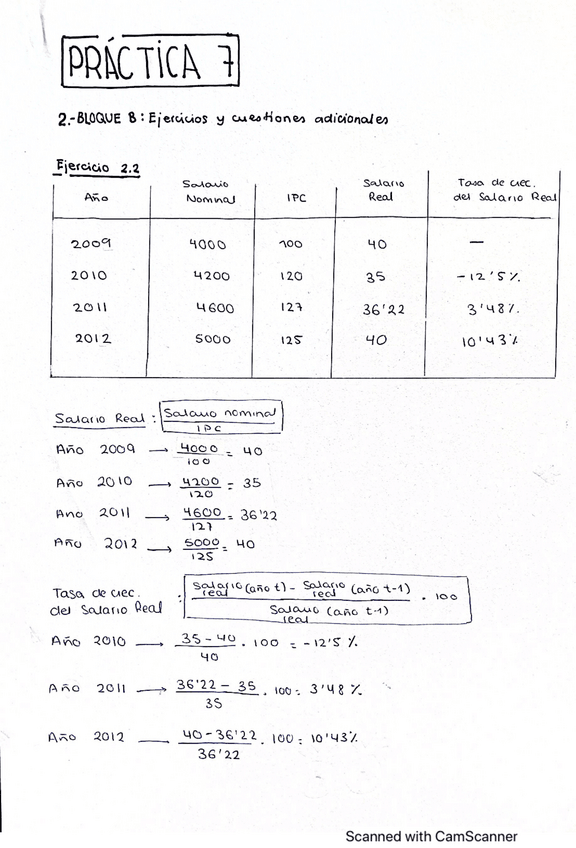 PRÁCTICA 7
2.-BLOQUE B: Ejercicios y cuestiones adicionales
Ejercicio 2.2
Año Salario Nominal IPC Salario Real Tasa de crec. del Salario Real
2009 4000 100 40 —
2010 4200 120 35 -12'5%
2011 4600 127 36'22 3'48%
2012 5000 125 40 10'43%
Salario Real : Salario nominal / IPC
Año 2009 → 4000/100 = 40
Año 2010 → 4200/120 = 35
Ano 2011 → 4600/127 = 36'22
Año 2012 → 5000/125 = 40
Tasa de crec. del Salario Real : Salario real (año t) - Salario real (año t-1) / Salario real (año t-1) · 100
Año 2010 → 35-40/40 · 100 = -12'5 %
Año 2011 → 36'22 - 35/35 · 100 = 3'48 %
Año 2012 — 40-36'22/36'22 · 100 = 10'43%
Scanned with CamScanner